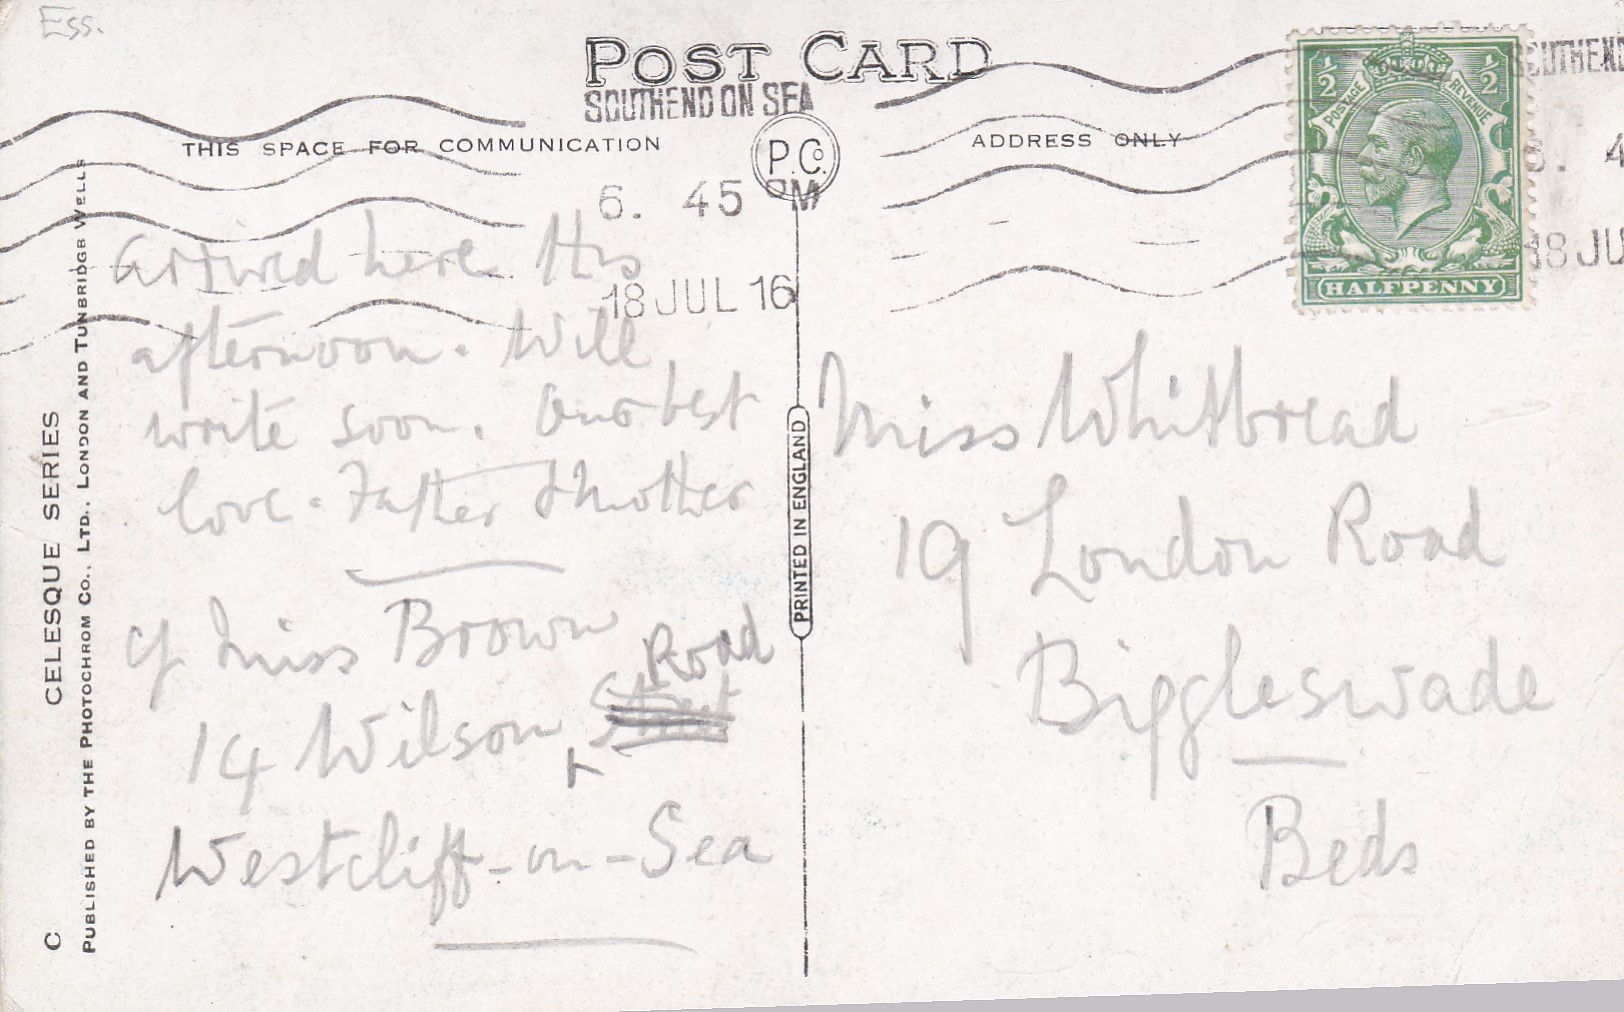 Ess.
POST CARD
SOUTHEND ON SEA
THIS SPACE FOR COMMUNICATION
P.Co.
ADDRESS ONLY
6. 45 PM
18 JUL 16
arrived here this
afternoon. Will
write soon. Our best
love. Father & Mother
c/o Miss Brown
Road
14 Wilson Street
Westcliff-on-Sea
½ ½
POSTAGE REVENUE
HALFPENNY
SOUTHEND
6. 4
18 JU
Miss Whitbread
19 London Road
Biggleswade
Beds
PRINTED IN ENGLAND
C CELESQUE SERIES
PUBLISHED BY THE PHOTOCHROM CO., LTD., LONDON AND TUNBRIDGE WELLS